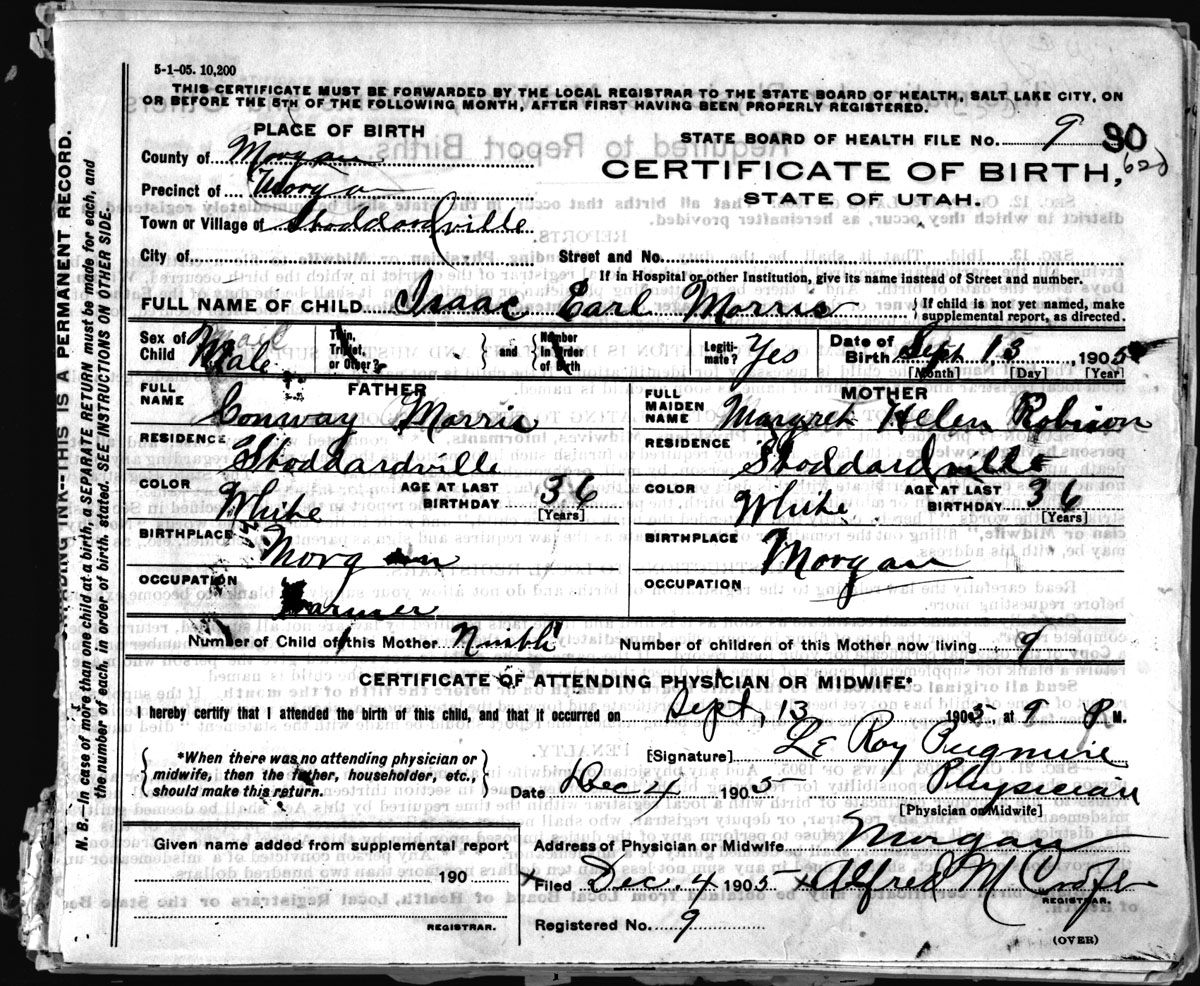 5-1-05. 10,200
THIS CERTIFICATE MUST BE FORWARDED BY THE LOCAL REGISTRAR TO THE STATE BOARD OF HEALTH, SALT LAKE CITY, ON
OR BEFORE THE 5TH OF THE FOLLOWING MONTH, AFTER FIRST HAVING BEEN PROPERLY REGISTERED.
PLACE OF BIRTH
STATE BOARD OF HEALTH FILE NO. 9 90
County of Morgan
CERTIFICATE OF BIRTH,
620
Precinct of Morgan
STATE OF UTAH.
Town or Village of Stoddardville
City of
Street and No.
If in Hospital or other Institution, give its name instead of Street and number.
FULL NAME OF CHILD Isaac Earl Morris
{If child is not yet named, make
supplemental report, as directed.
Sex of Child Male
Twin, Triplet, or Other?
} and {
Number in Order of Birth
Legiti-mate? Yes
Date of Birth Sept 13, 1905
[Month] [Day] [Year]
FATHER
FULL NAME Conway Morris
RESIDENCE Stoddardville
COLOR White
AGE AT LAST BIRTHDAY 36
[Years]
BIRTHPLACE Morgan
OCCUPATION Farmer
MOTHER
FULL MAIDEN NAME Margret Helen Robison
RESIDENCE Stoddardville
COLOR White
AGE AT LAST BIRTHDAY 36
[Years]
BIRTHPLACE Morgan
OCCUPATION
Number of Child of this Mother Ninth
Number of children of this Mother now living 9
CERTIFICATE OF ATTENDING PHYSICIAN OR MIDWIFE*
I hereby certify that I attended the birth of this child, and that it occurred on Sept, 13 1905 at 9 P. M.
{*When there was no attending physician or
midwife, then the father, householder, etc.,
should make this return.}
[Signature] Le Roy Pugmire
Date Dec 4 1905 Physician
[Physician or Midwife]
Given name added from supplemental report
190
REGISTRAR.
Address of Physician or Midwife Morgan
x Filed Dec. 4 1905 x Alfred M
REGISTRAR.
Registered No. 9
(OVER)
N. B.—In case of more than one child at a birth, a SEPARATE RETURN must be made for each, and
the number of each, in order of birth, stated. SEE INSTRUCTIONS ON OTHER SIDE.
INK--THIS IS A PERMANENT RECORD.